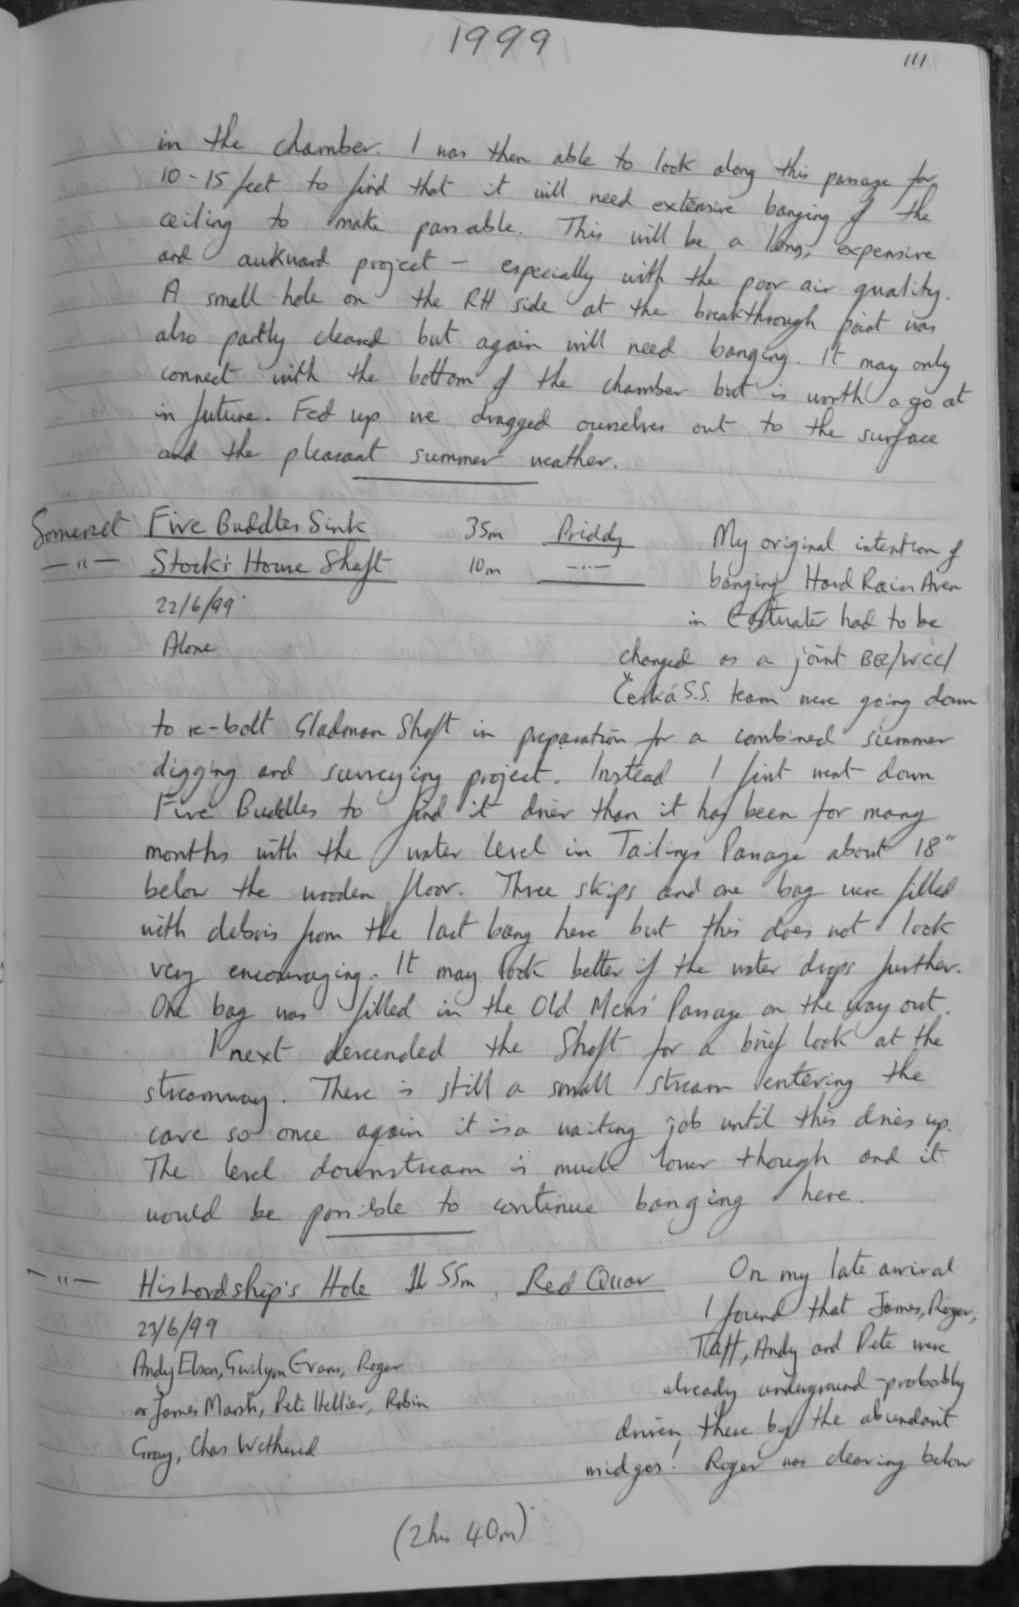 1999
111
in the chamber. I was then able to look along this passage for
10-15 feet to find that it will need extensive banging of the
ceiling to make passable. This will be a long, expensive
and awkward project - especially with the poor air quality.
A small hole on the RH side at the breakthrough point was
also partly cleared but again will need banging. It may only
connect with the bottom of the chamber but is worth a go at
in future. Fed up we dragged ourselves out to the surface
and the pleasant summer weather.
Somerset Five Buddles Sink 35m Priddy My original intention of
-"- Stock's House Shaft 10m -"- banging Hard Rain Aven
22/6/99 in Eastwater had to be
Alone changed as a joint BEC/WCC/
Česká S.S. team were going down
to re-bolt Gladman Shaft in preparation for a combined summer
digging and surveying project. Instead I first went down
Five Buddles to find it drier than it has been for many
months with the water level in Tailings Passage about 18"
below the wooden floor. Three skips and one bag were filled
with debris from the last bang here but this does not look
very encouraging. It may look better if the water drops further.
One bag was filled in the Old Mens' Passage on the way out.
I next descended the Shaft for a brief look at the
streamway. There is still a small stream entering the
cave so once again it is a waiting job until this dries up.
The level downstream is much lower though and it
would be possible to continue banging here.
-"- His Lordship's Hole 55m Red Quar On my late arrival
23/6/99 I found that James, Roger,
Andy Elson, Gwilym Evans, Roger Taff, Andy and Pete were
or James Marsh, Pete Hellier, Robin already underground - probably
Gray, Chas Wethered driven there by the abundant
midges! Roger was clearing below
(2hrs 40m)